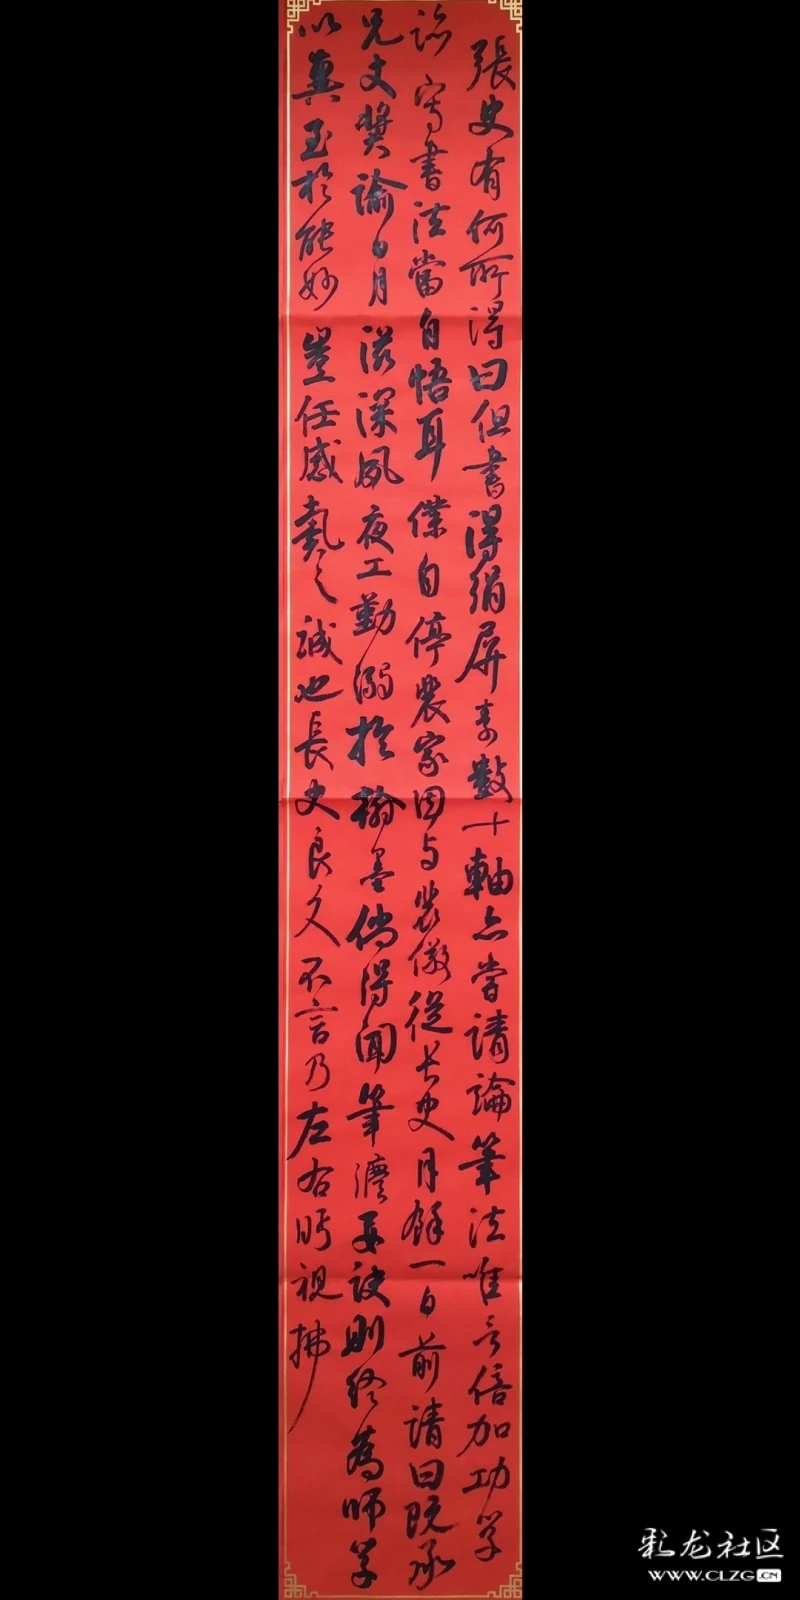 張史有何所得曰但書得絹屏素數十軸亦嘗請論筆法唯言倍加功學
臨寫書法當自悟耳僕自停裴家因与裴儆從長史月餘一日前請曰既承
兄丈奬諭日月滋深夙夜工勤溺於翰墨倘得聞筆法要訣則終為師學
以冀至於能妙豈任感戴之誠也長史良久不言乃左右眄視拂
彩龙社区
WWW.CLZG.CN